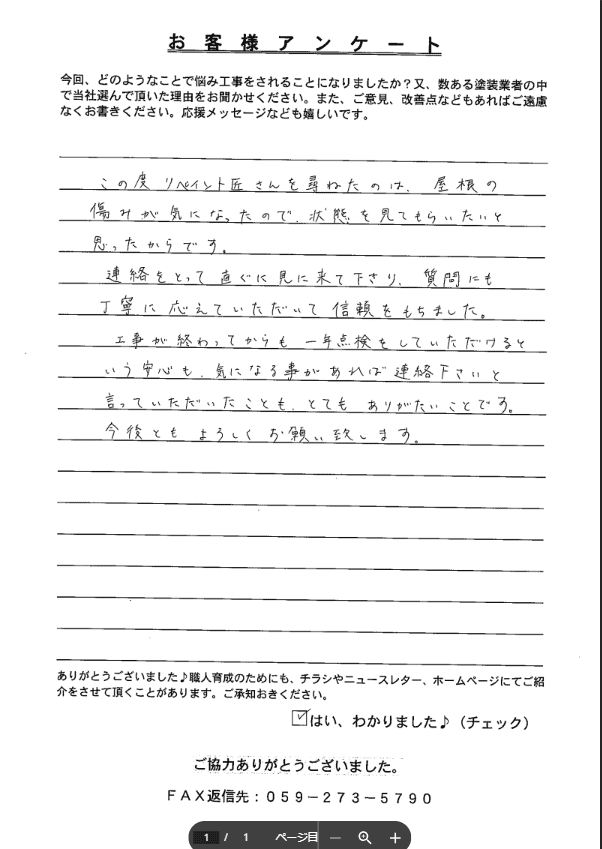 お客様アンケート
今回、どのようなことで悩み工事をされることになりましたか？又、数ある塗装業者の中
で当社選んで頂いた理由をお聞かせください。また、ご意見、改善点などもあればご遠慮
なくお書きください。応援メッセージなども嬉しいです。
この度 リペイント匠さんを尋ねたのは、屋根の
傷みが気になったので、状態を見てもらいたいと
思ったからです。
連絡をとって直ぐに見に来て下さり、質問にも
丁寧に応えていただいて信頼をもちました。
工事が終わってからも 一年点検をしていただけると
いう安心も、気になる事があれば連絡下さいと
言っていただいたことも、とても ありがたいことです。
今後とも よろしく お願い致します。
ありがとうございました♪職人育成のためにも、チラシやニュースレター、ホームページにてご紹
介をさせて頂くことがあります。ご承知おきください。
☑はい、わかりました♪（チェック）
ご協力ありがとうございました。
ＦＡＸ返信先：０５９－２７３－５７９０
1 / 1 ページ目